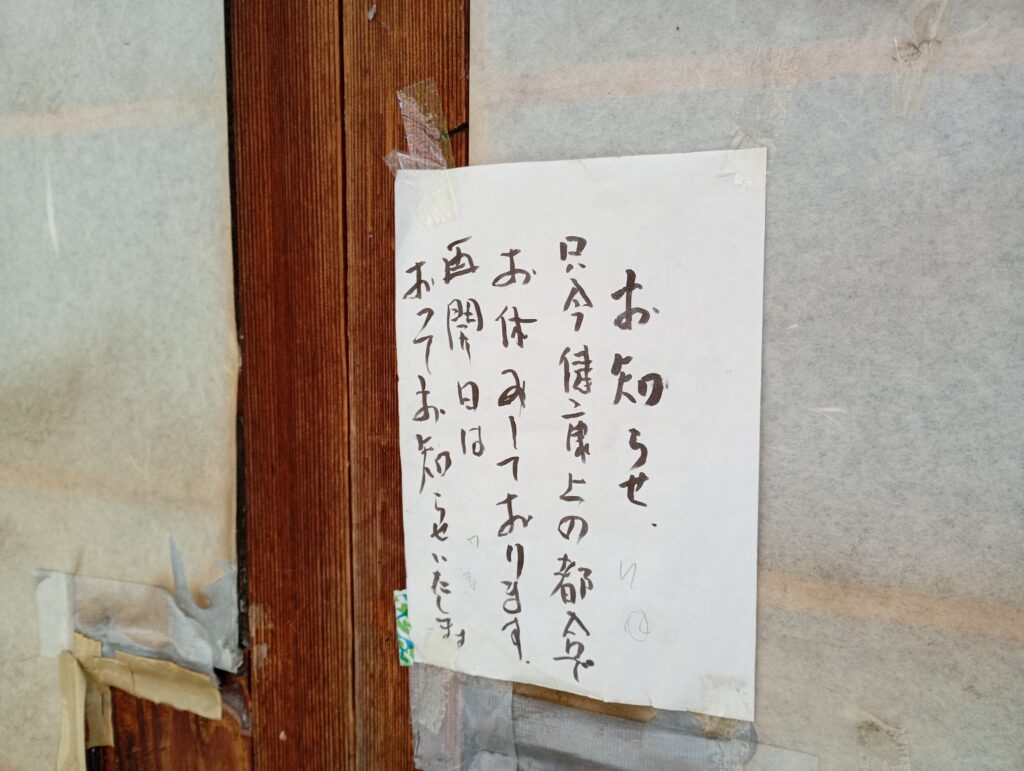 お知らせ.
只今健康上の都合で
お休みしております.
再開日は
おってお知らせいたします